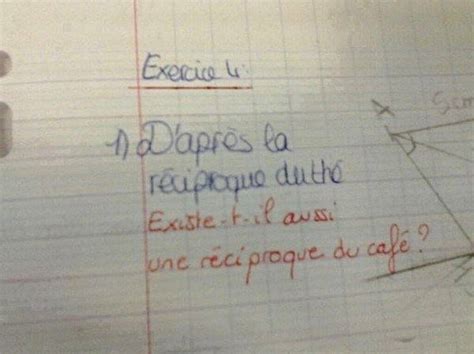 Exercice 4:
1) D'après la
réciproque du thé
Existe-t-il aussi
une réciproque du café ?
x